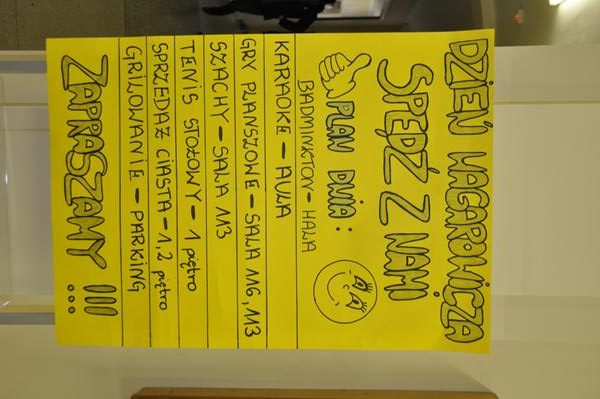 DZIEŃ WAGAROWICZA
SPĘDŹ Z NAMI
PLAN DNIA:
BADMINKTON - HALA
KARAOKE - AULA
GRY PLANSZOWE - SALA 116, 113
SZACHY - SALA 113
TENIS STOŁOWY - 1 piętro
SPRZEDAŻ CIASTA - 1, 2 piętro
GRILOWANIE - PARKING
ZAPRASZAMY !!! ...